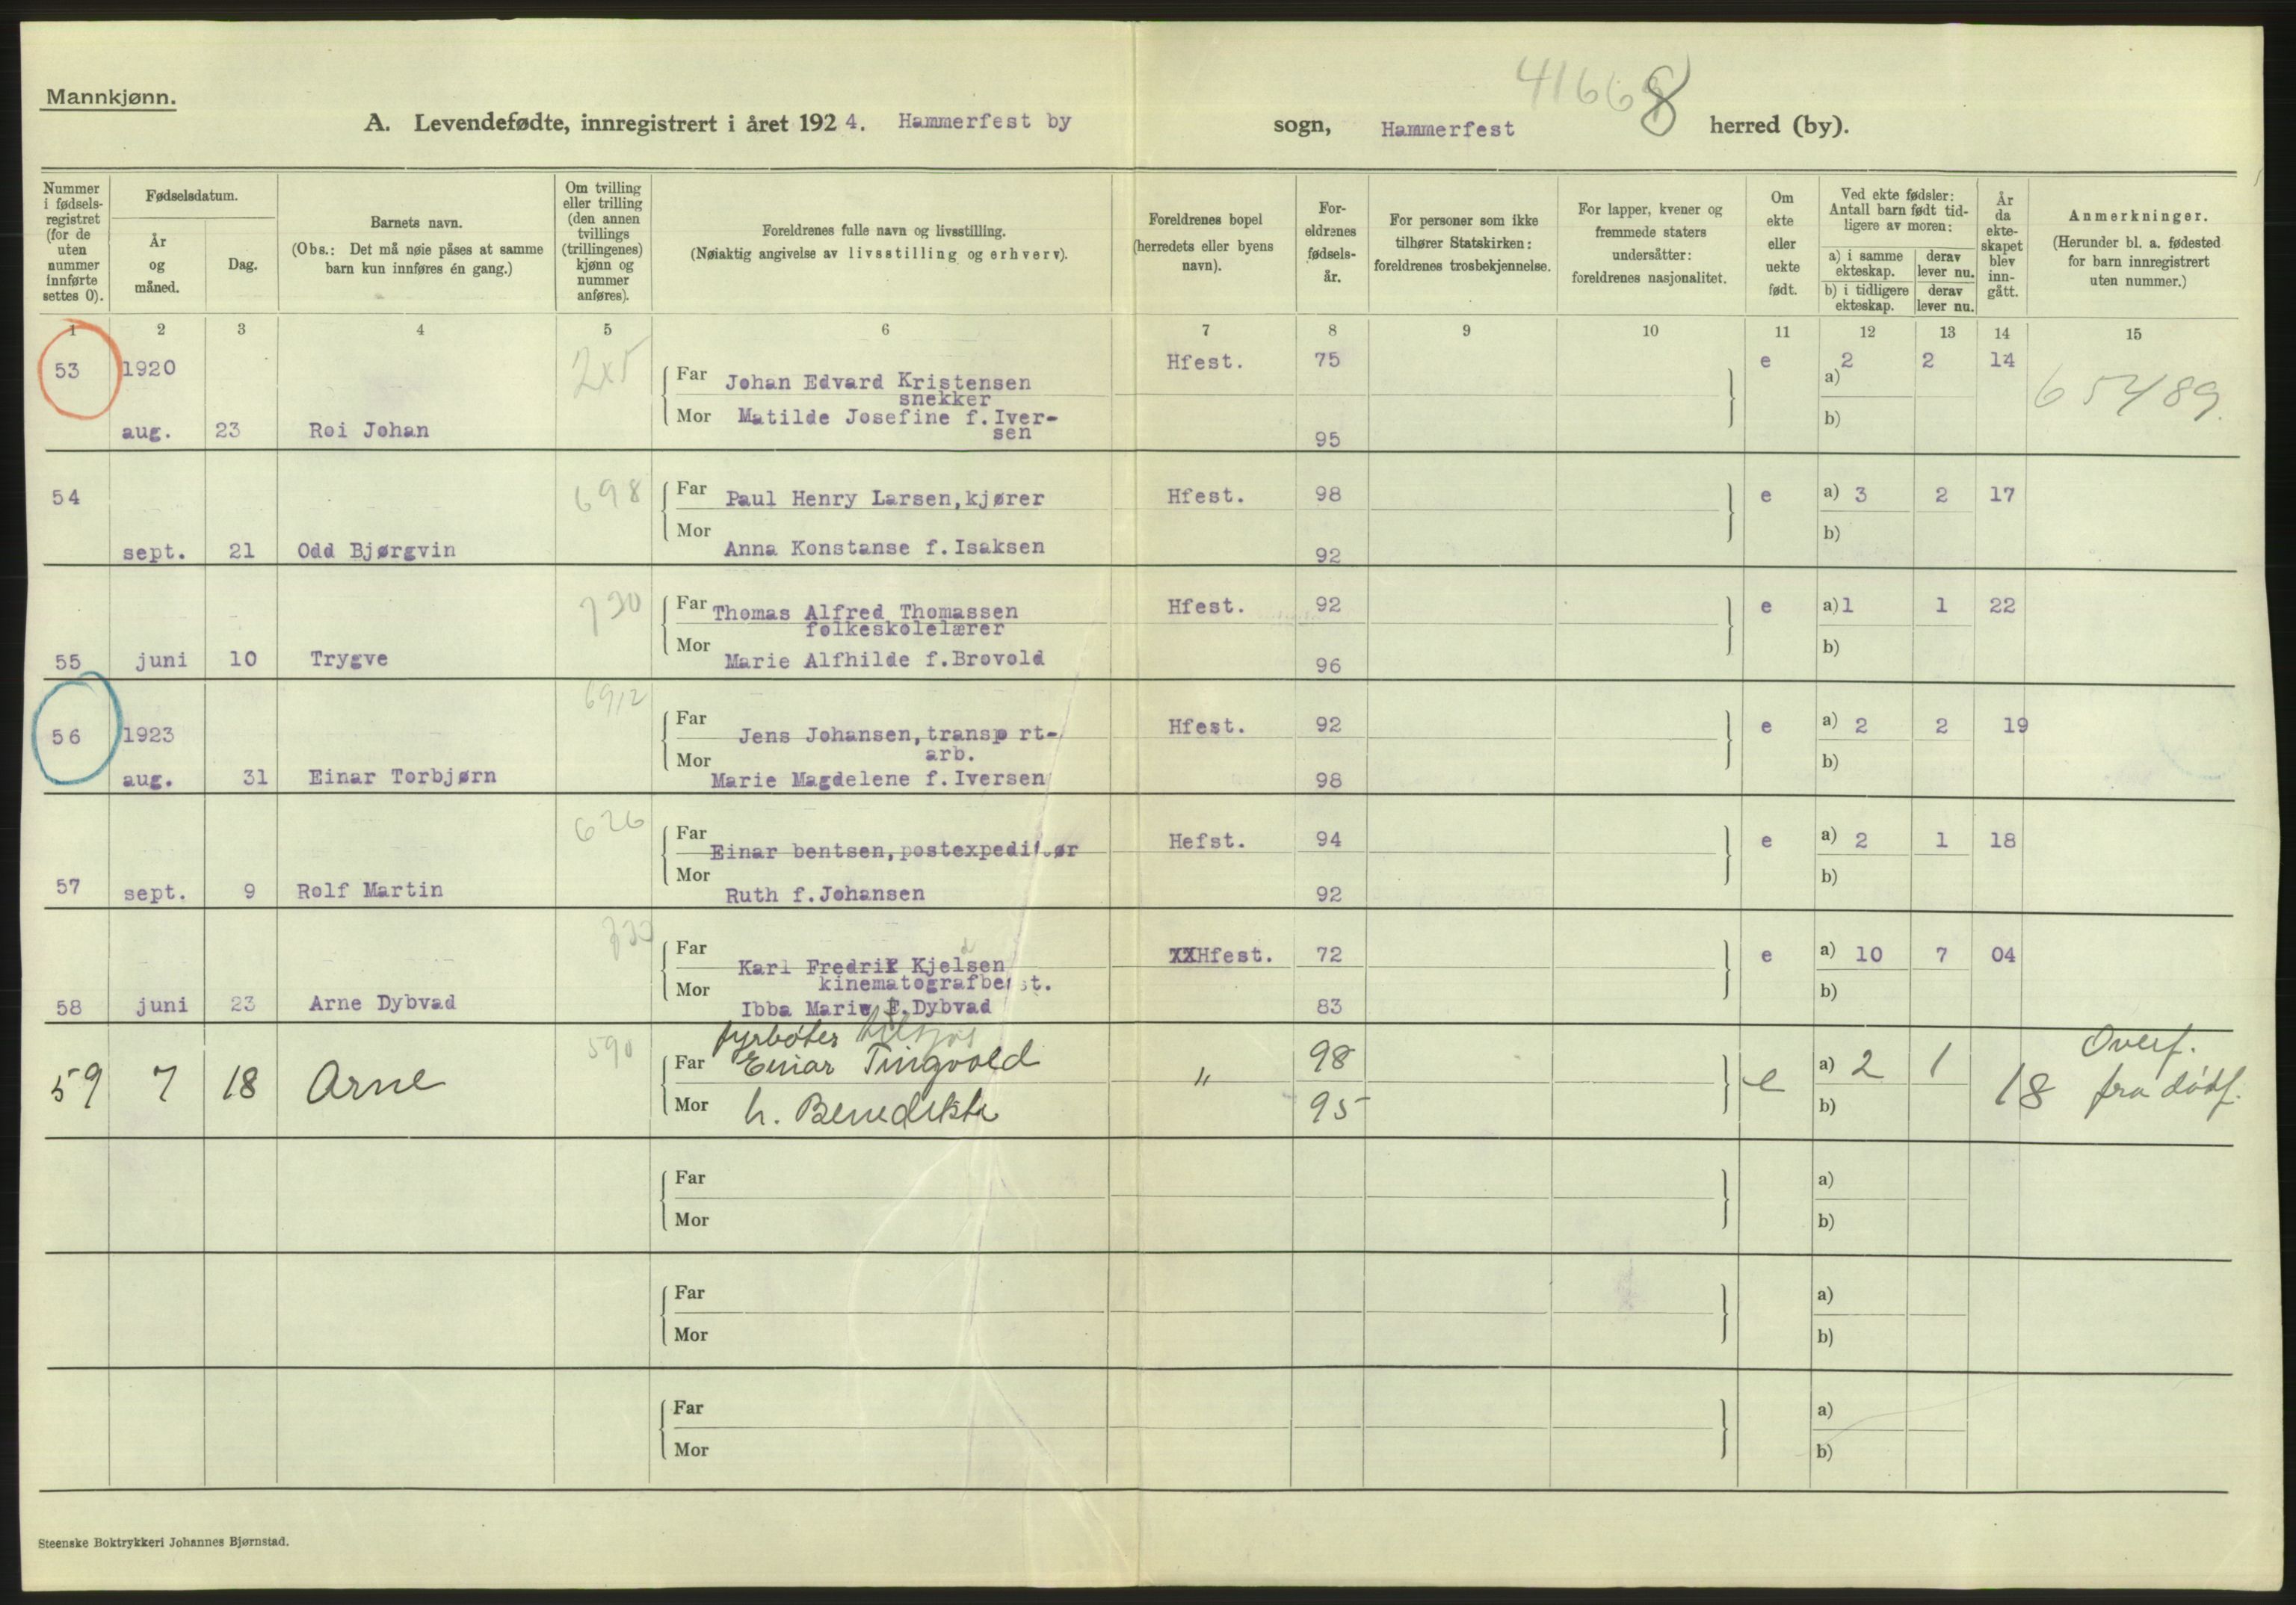 41668
Mannkjønn.
A. Levendefødte, innregistrert i året 1924. Hammerfest by sogn, Hammerfest herred (by).
Nummer i fødsels-registret (for de uten nummer innførte settes 0).
Fødselsdatum.
År og måned.
Dag.
Barnets navn.
(Obs.: Det må nøie påses at samme barn kun innføres én gang.)
Om tvilling eller trilling (den annen tvillings (trillingenes) kjønn og nummer anføres).
Foreldrenes fulle navn og livsstilling.
(Nøiaktig angivelse av livsstilling og erhverv).
Foreldrenes bopel (herredets eller byens navn).
For-eldrenes fødsels-år.
For personer som ikke tilhører Statskirken: foreldrenes trosbekjennelse.
For lapper, kvener og fremmede staters undersåtter: foreldrenes nasjonalitet.
Om ekte eller uekte født.
Ved ekte fødsler: Antall barn født tid-ligere av moren:
a) i samme ekteskap. derav lever nu.
b) i tidligere ekteskap. derav lever nu.
År da ekte-skapet blev inn-gått.
Anmerkninger.
(Herunder bl. a. fødested for barn innregistrert uten nummer.)
1 2 3 4 5 6 7 8 9 10 11 12 13 14 15
53 1920 Far Johan Edvard Kristensen Hfest. 75 e a) 2 2 14 65489.
snekker
aug. 23 Roi Johan Mor Matilde Josefine f.Iver- 95 b)
sen
54 698 Far Paul Henry Larsen,kjører Hfest. 98 e a) 3 2 17
sept. 21 Odd Bjørgvin Mor Anna Konstanse f.Isaksen 92 b)
730 Far Thomas Alfred Thomassen Hfest. 92 e a)1 1 22
folkeskolelærer
55 juni 10 Trygve Mor Marie Alfhilde f.Brovold 96 b)
6912
56 1923 Far Jens Johansen,transp rt- Hfest. 92 e a) 2 2 19
arb.
aug. 31 Einar Torbjørn Mor Marie Magdelene f.Iversen 98 b)
626 Far Einar bentsen,postexpeditør Hefst. 94 e a) 2 1 18
57 sept. 9 Rolf Martin Mor Ruth f.Johansen 92 b)
Far Karl Fredrik Kjelsen XXHfest. 72 e a) 10 7 04
kinematografbest.
58 juni 23 Arne Dybvad Mor Ibba Marie f.Dybvad 83 b)
fyrbøter
59 7 18 Arne 590 Far Einar Tingvold " 98 e a) 2 1 18 Overf. fra dødf.
Mor h. Benedikte 95 b)
Far a)
Mor b)
Far a)
Mor b)
Far a)
Mor b)
Steenske Boktrykkeri Johannes Bjørnstad.